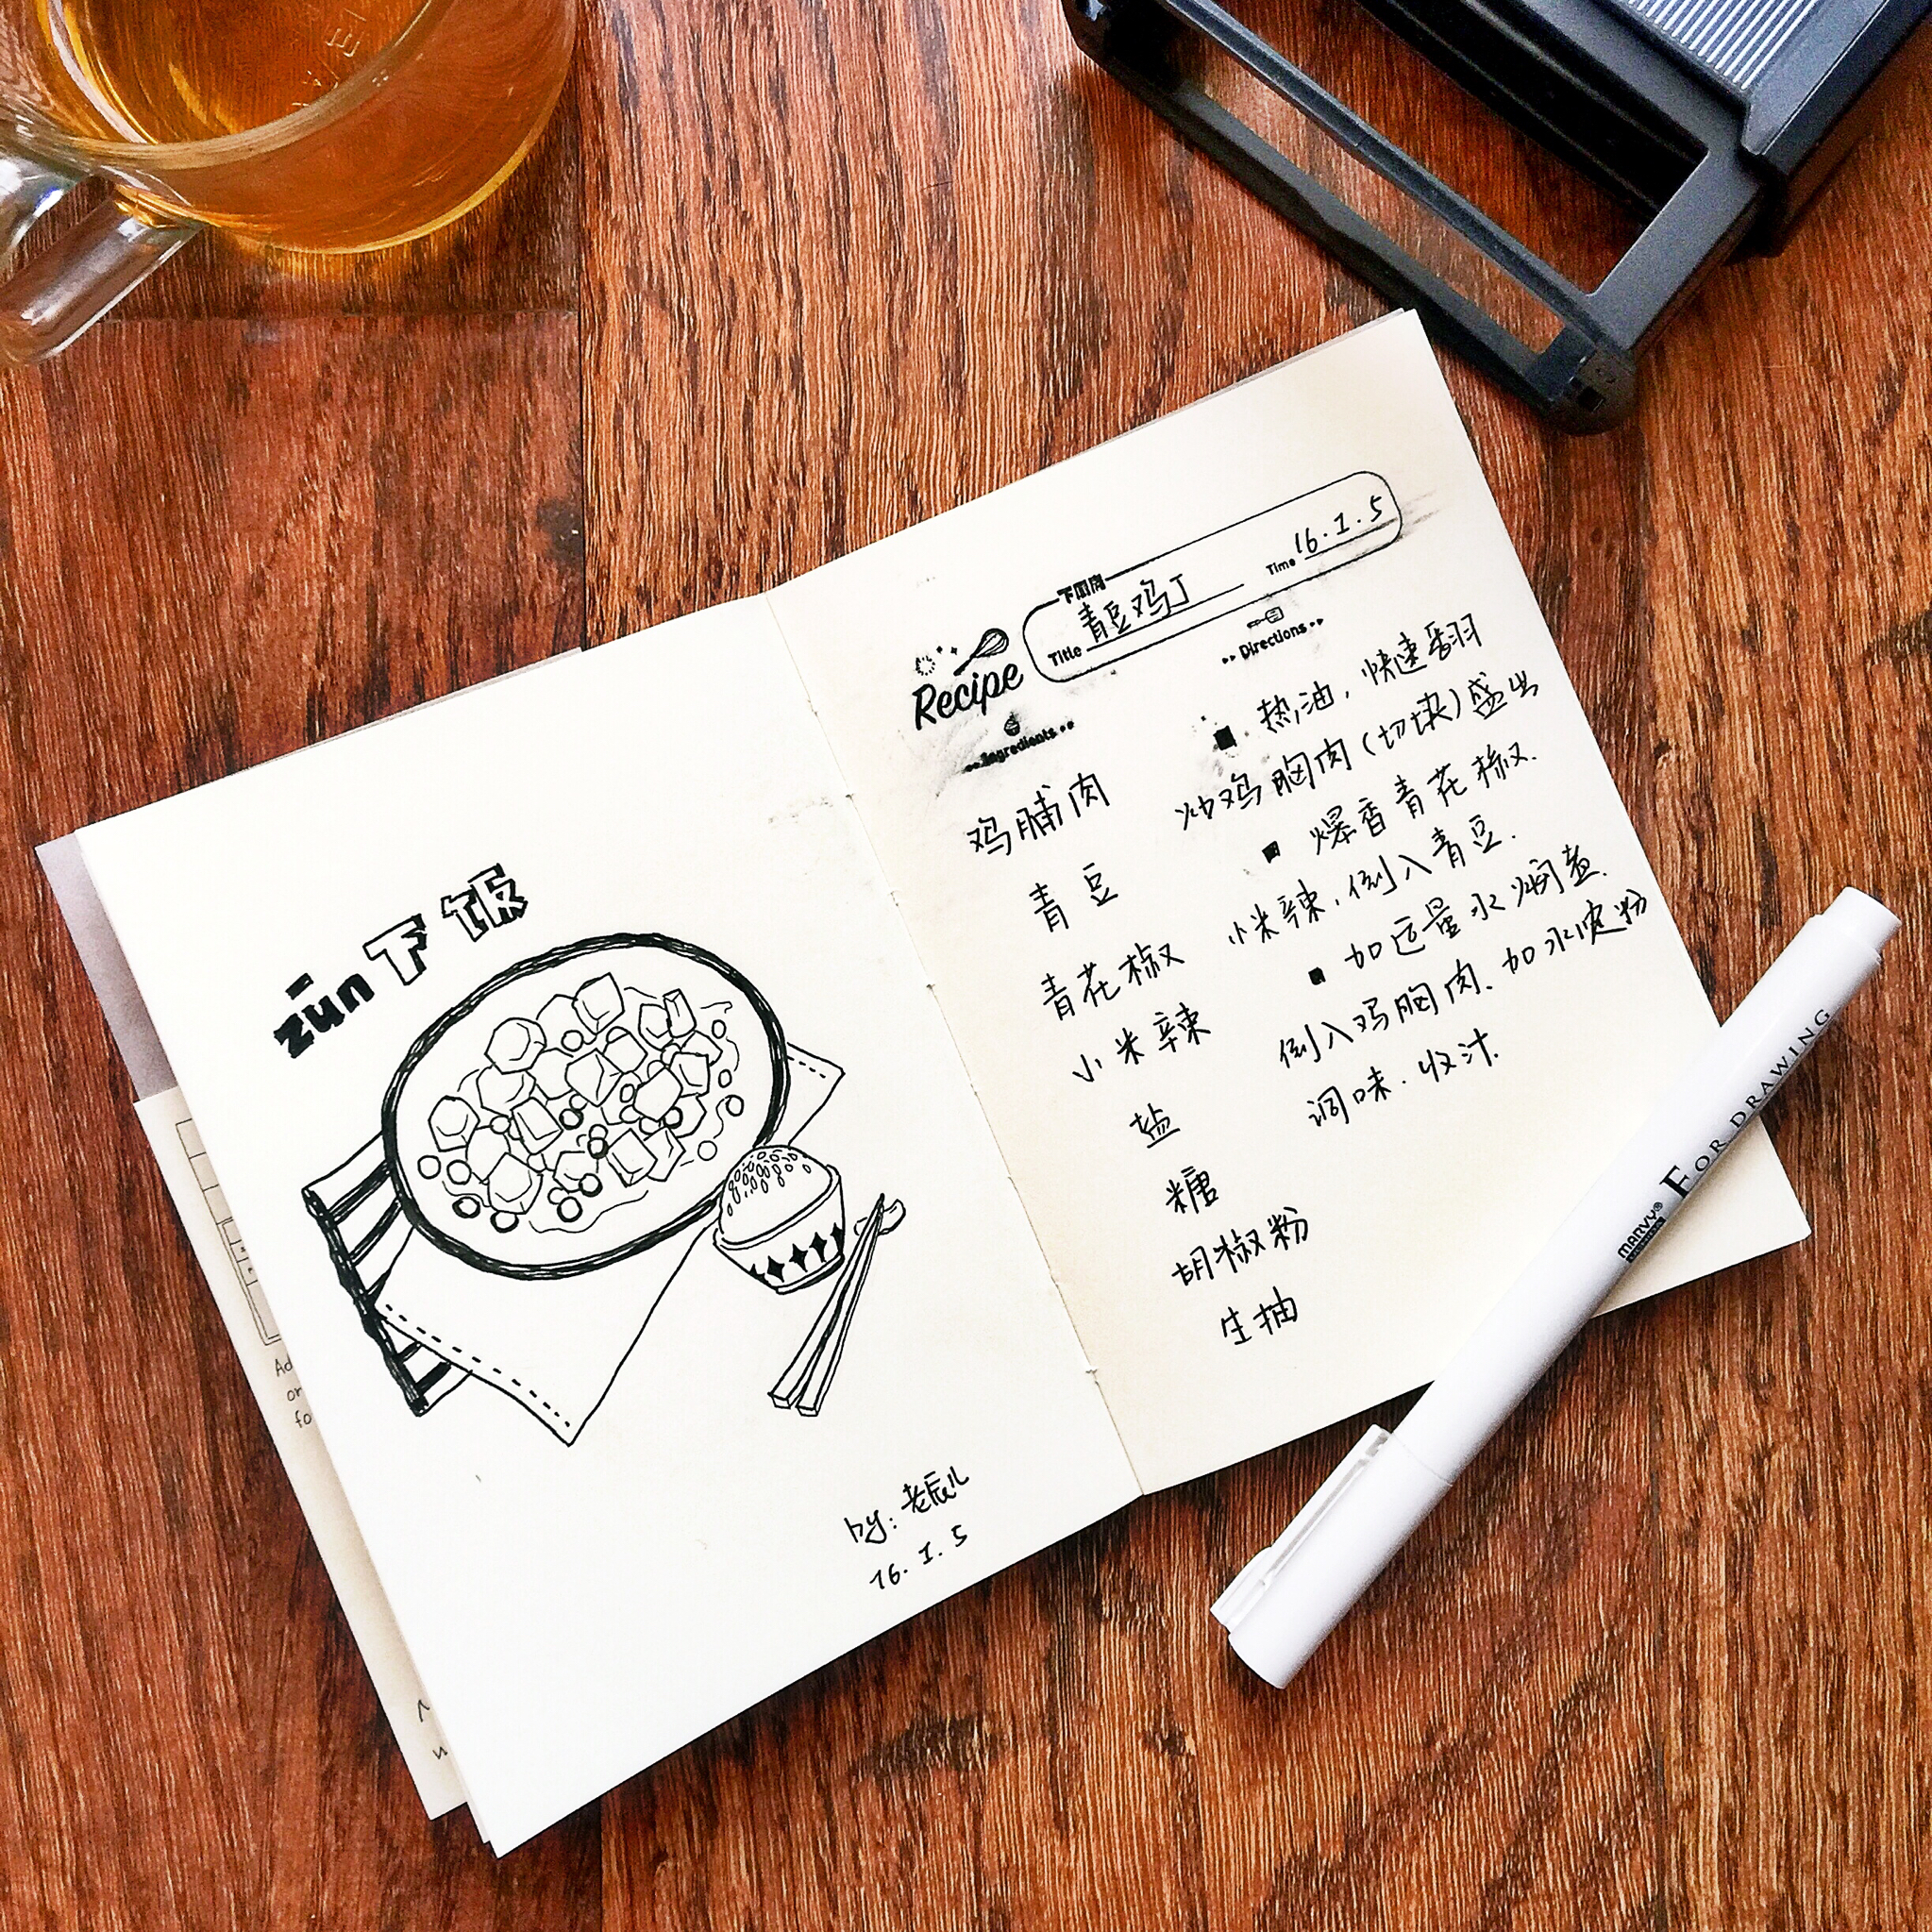 zūn下饭
by: 老辰儿
16. 1. 5
下厨房
Title 青豆鸡丁 Time 16. 1. 5
Recipe
Ingredients
鸡脯肉
青豆
青花椒
小米辣
盐
糖
胡椒粉
生抽
Directions
■ 热油，快速翻
炒鸡胸肉(切块)盛出
■ 爆香青花椒.
小米辣，倒入青豆.
■ 加适量水焖煮.
倒入鸡胸肉、加水淀粉
调味.收汁.
MARVY® FOR DRAWING
Ad
or
fo